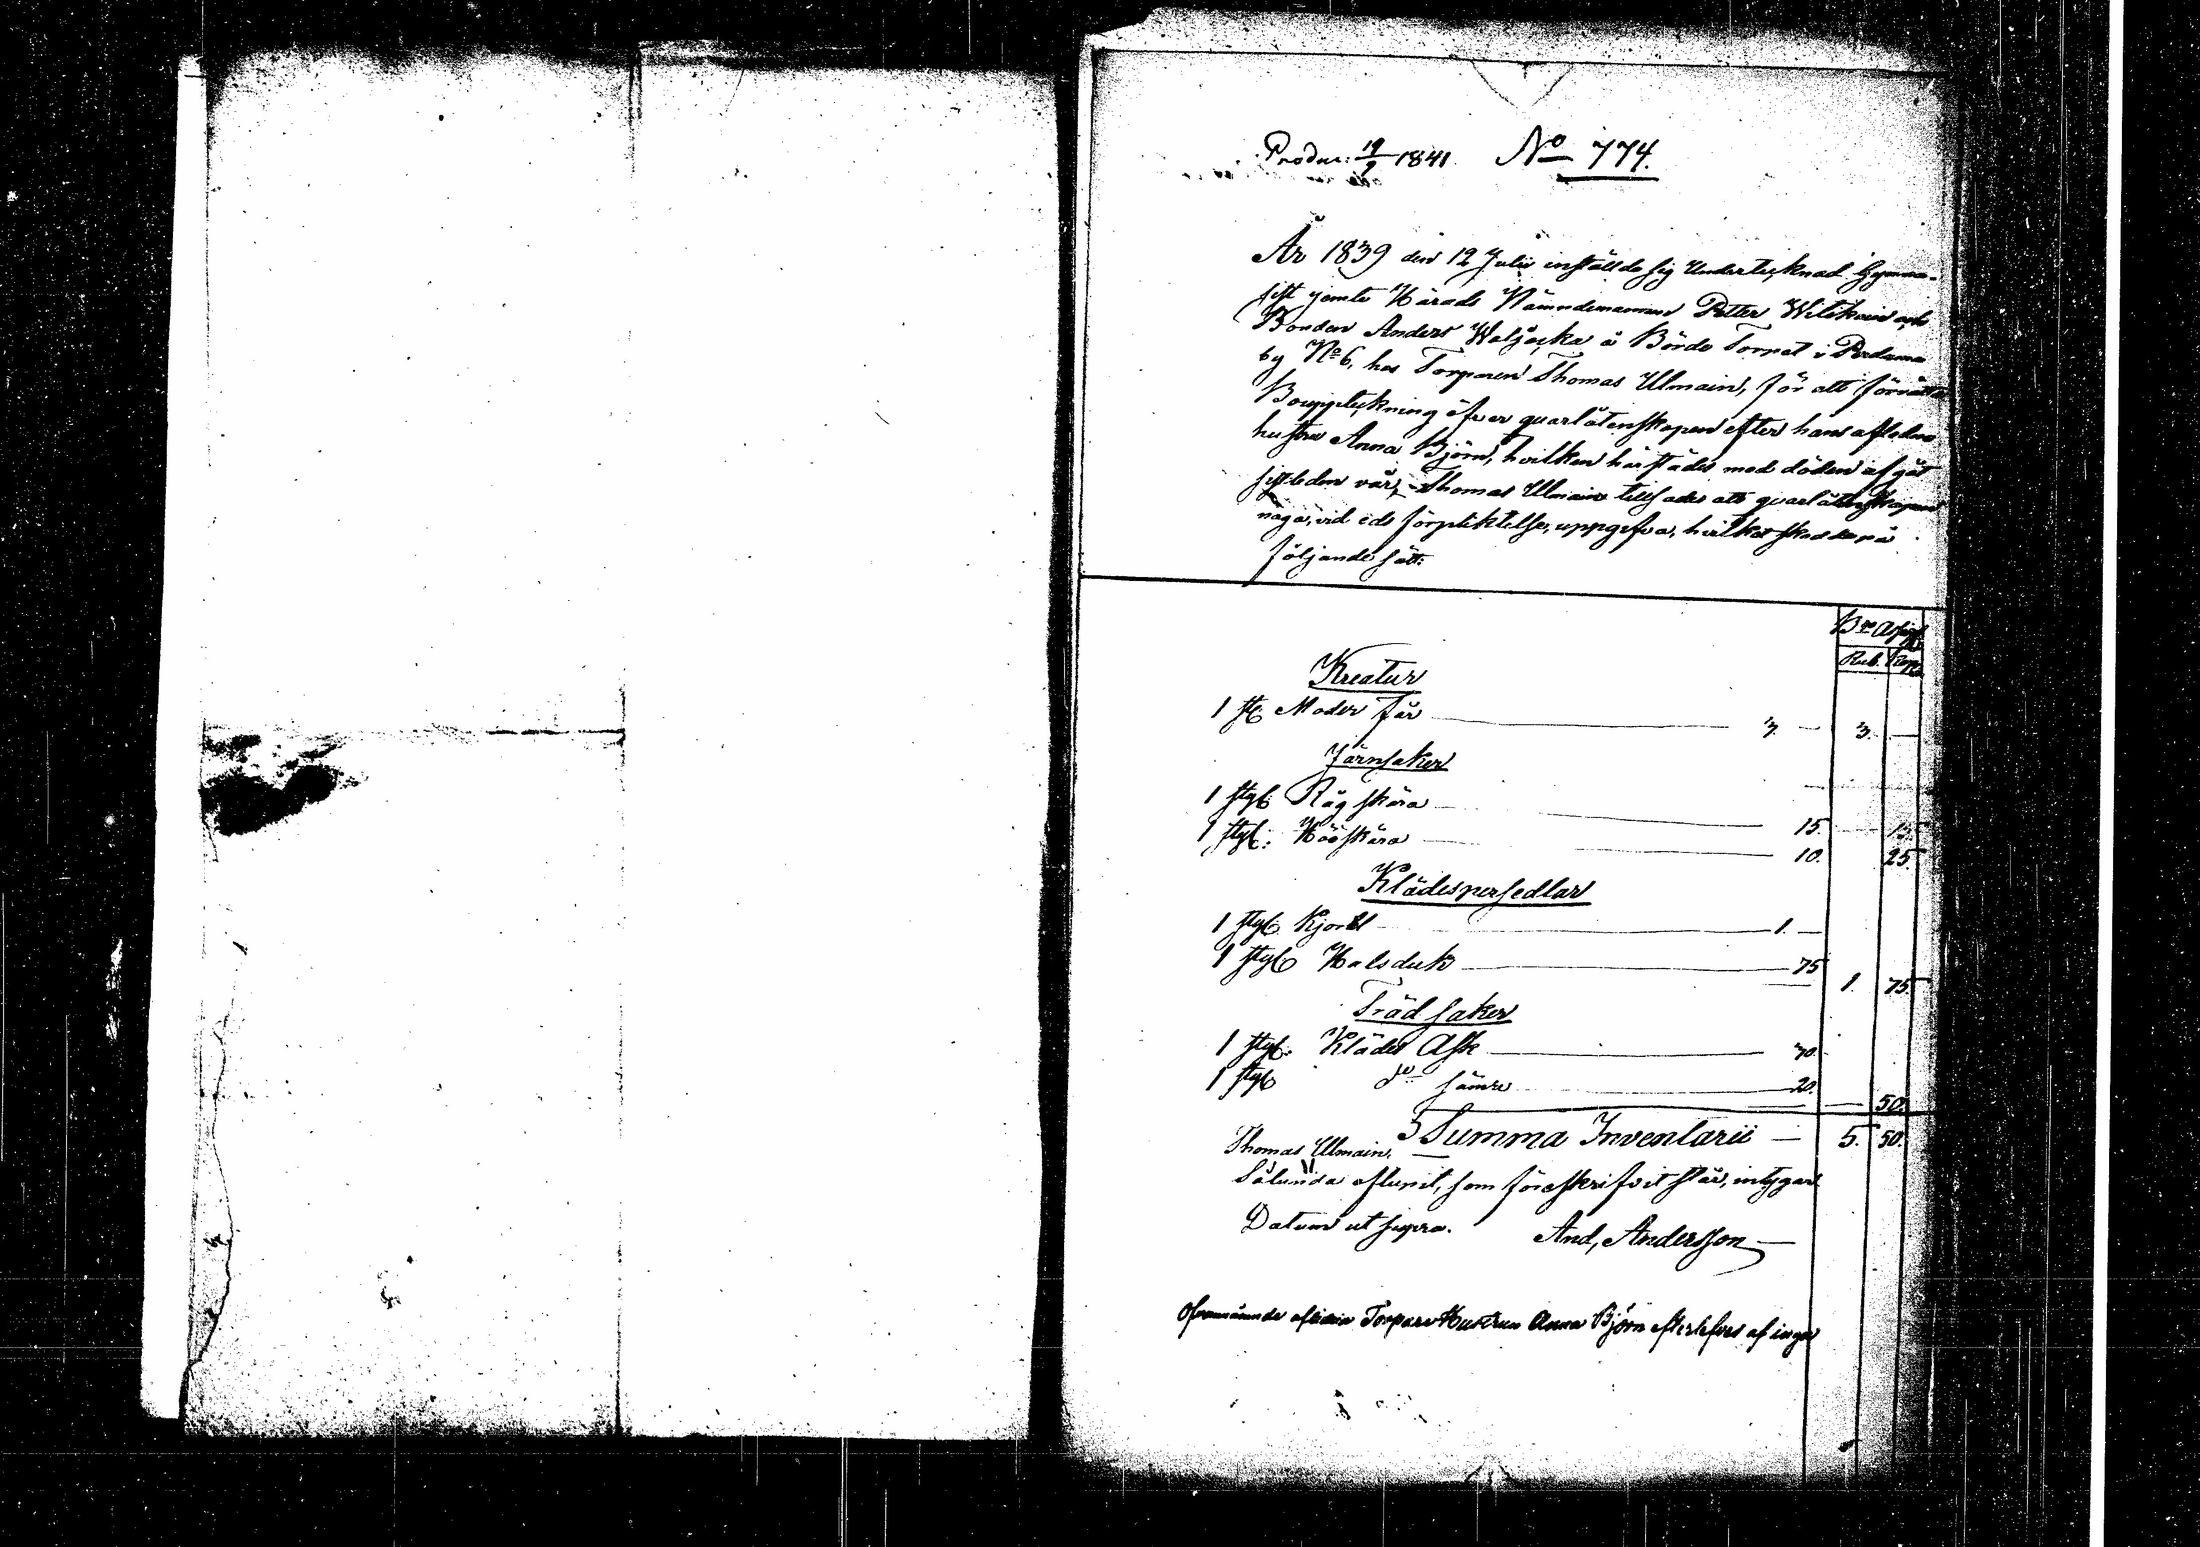 Produc: 19/9 1841. No 774.
År 1839 den 12 Julii inställde sig Undertecknad Gymna-
sist jemte Härads Nämndemannen Petter Witikain och
Bonden Anders Waljacka å Börds Torpet i
by No 6, hos Torparen Thomas Ulmain, för att förrätta
Bouppteckning öfver quarlåtenskapen efter hans aflidna
hustru Anna Björn, hvilken härstädes med döden afgåt
sistleden vår, Thomas Ulmain tillsades att quarlåtenskapen
noga, vid eds förpliktelse, uppgifva, hvilket skedde på
följande sätt:
Bco Assign
Rub. Kop
Kreatur
1 st. Moder får 3. — 3. —
Järnsaker
1 styck Råg skära 15. 15.
1 styck: Höö skära 10. 25.
Klädespersedlar
1 styck Kjortel 1. —
1 styck Halsduk 75 1. 75.
Träd saker
1 styck: Kläde Ask 30.
1 styck do sämre 20. 50.
Summa Inventarii — 5. 50.
Thomas Ulmain.
Sålunda aflupit, som föreskrifvit står, intygar
Datum ut supra. And, Andersson
Ofvannämnde aflidna Torpare Hustrun Anna Björn efterlefves af inga